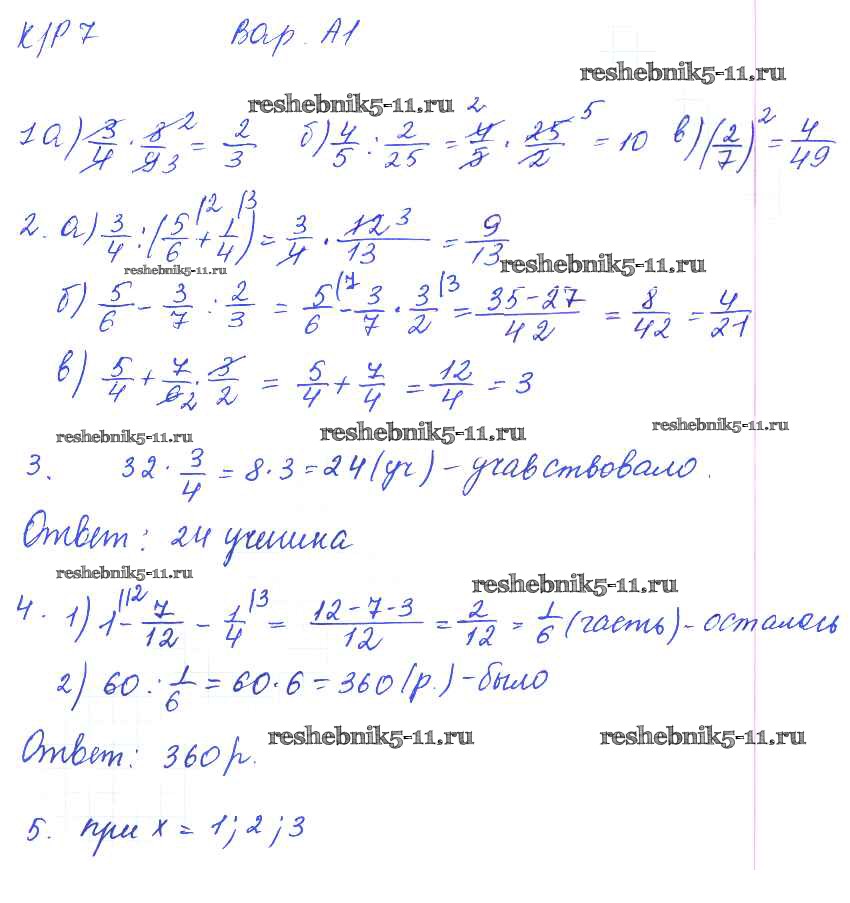 К/Р 7 Вар. А1
reshebnik5-11.ru
reshebnik5-11.ru
1 а) 3/4 · 8/9 = 2/3 б) 4/5 : 2/25 = 4/5 · 25/2 = 10 в) (2/7)² = 4/49
2. а) 3/4 : (5/6 + 1/4) = 3/4 · 12/13 = 9/13
reshebnik5-11.ru reshebnik5-11.ru
б) 5/6 - 3/7 : 2/3 = 5/6 - 3/7 · 3/2 = 35-27/42 = 8/42 = 4/21
в) 5/4 + 7/6 · 3/2 = 5/4 + 7/4 = 12/4 = 3
reshebnik5-11.ru reshebnik5-11.ru reshebnik5-11.ru
3. 32 · 3/4 = 8 · 3 = 24 (уч) - учавствовало.
Ответ: 24 ученика
reshebnik5-11.ru reshebnik5-11.ru
4. 1) 1 - 7/12 - 1/4 = 12-7-3/12 = 2/12 = 1/6 (часть) - осталось
2) 60 : 1/6 = 60 · 6 = 360 (р.) - было
Ответ: 360 р.
reshebnik5-11.ru reshebnik5-11.ru
5. при х = 1; 2; 3